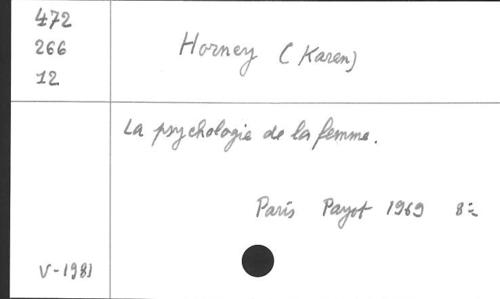 472
266
12
Horney (Karen)
La psychologie de la femme.
Paris Payot 1969 8º
V-1981